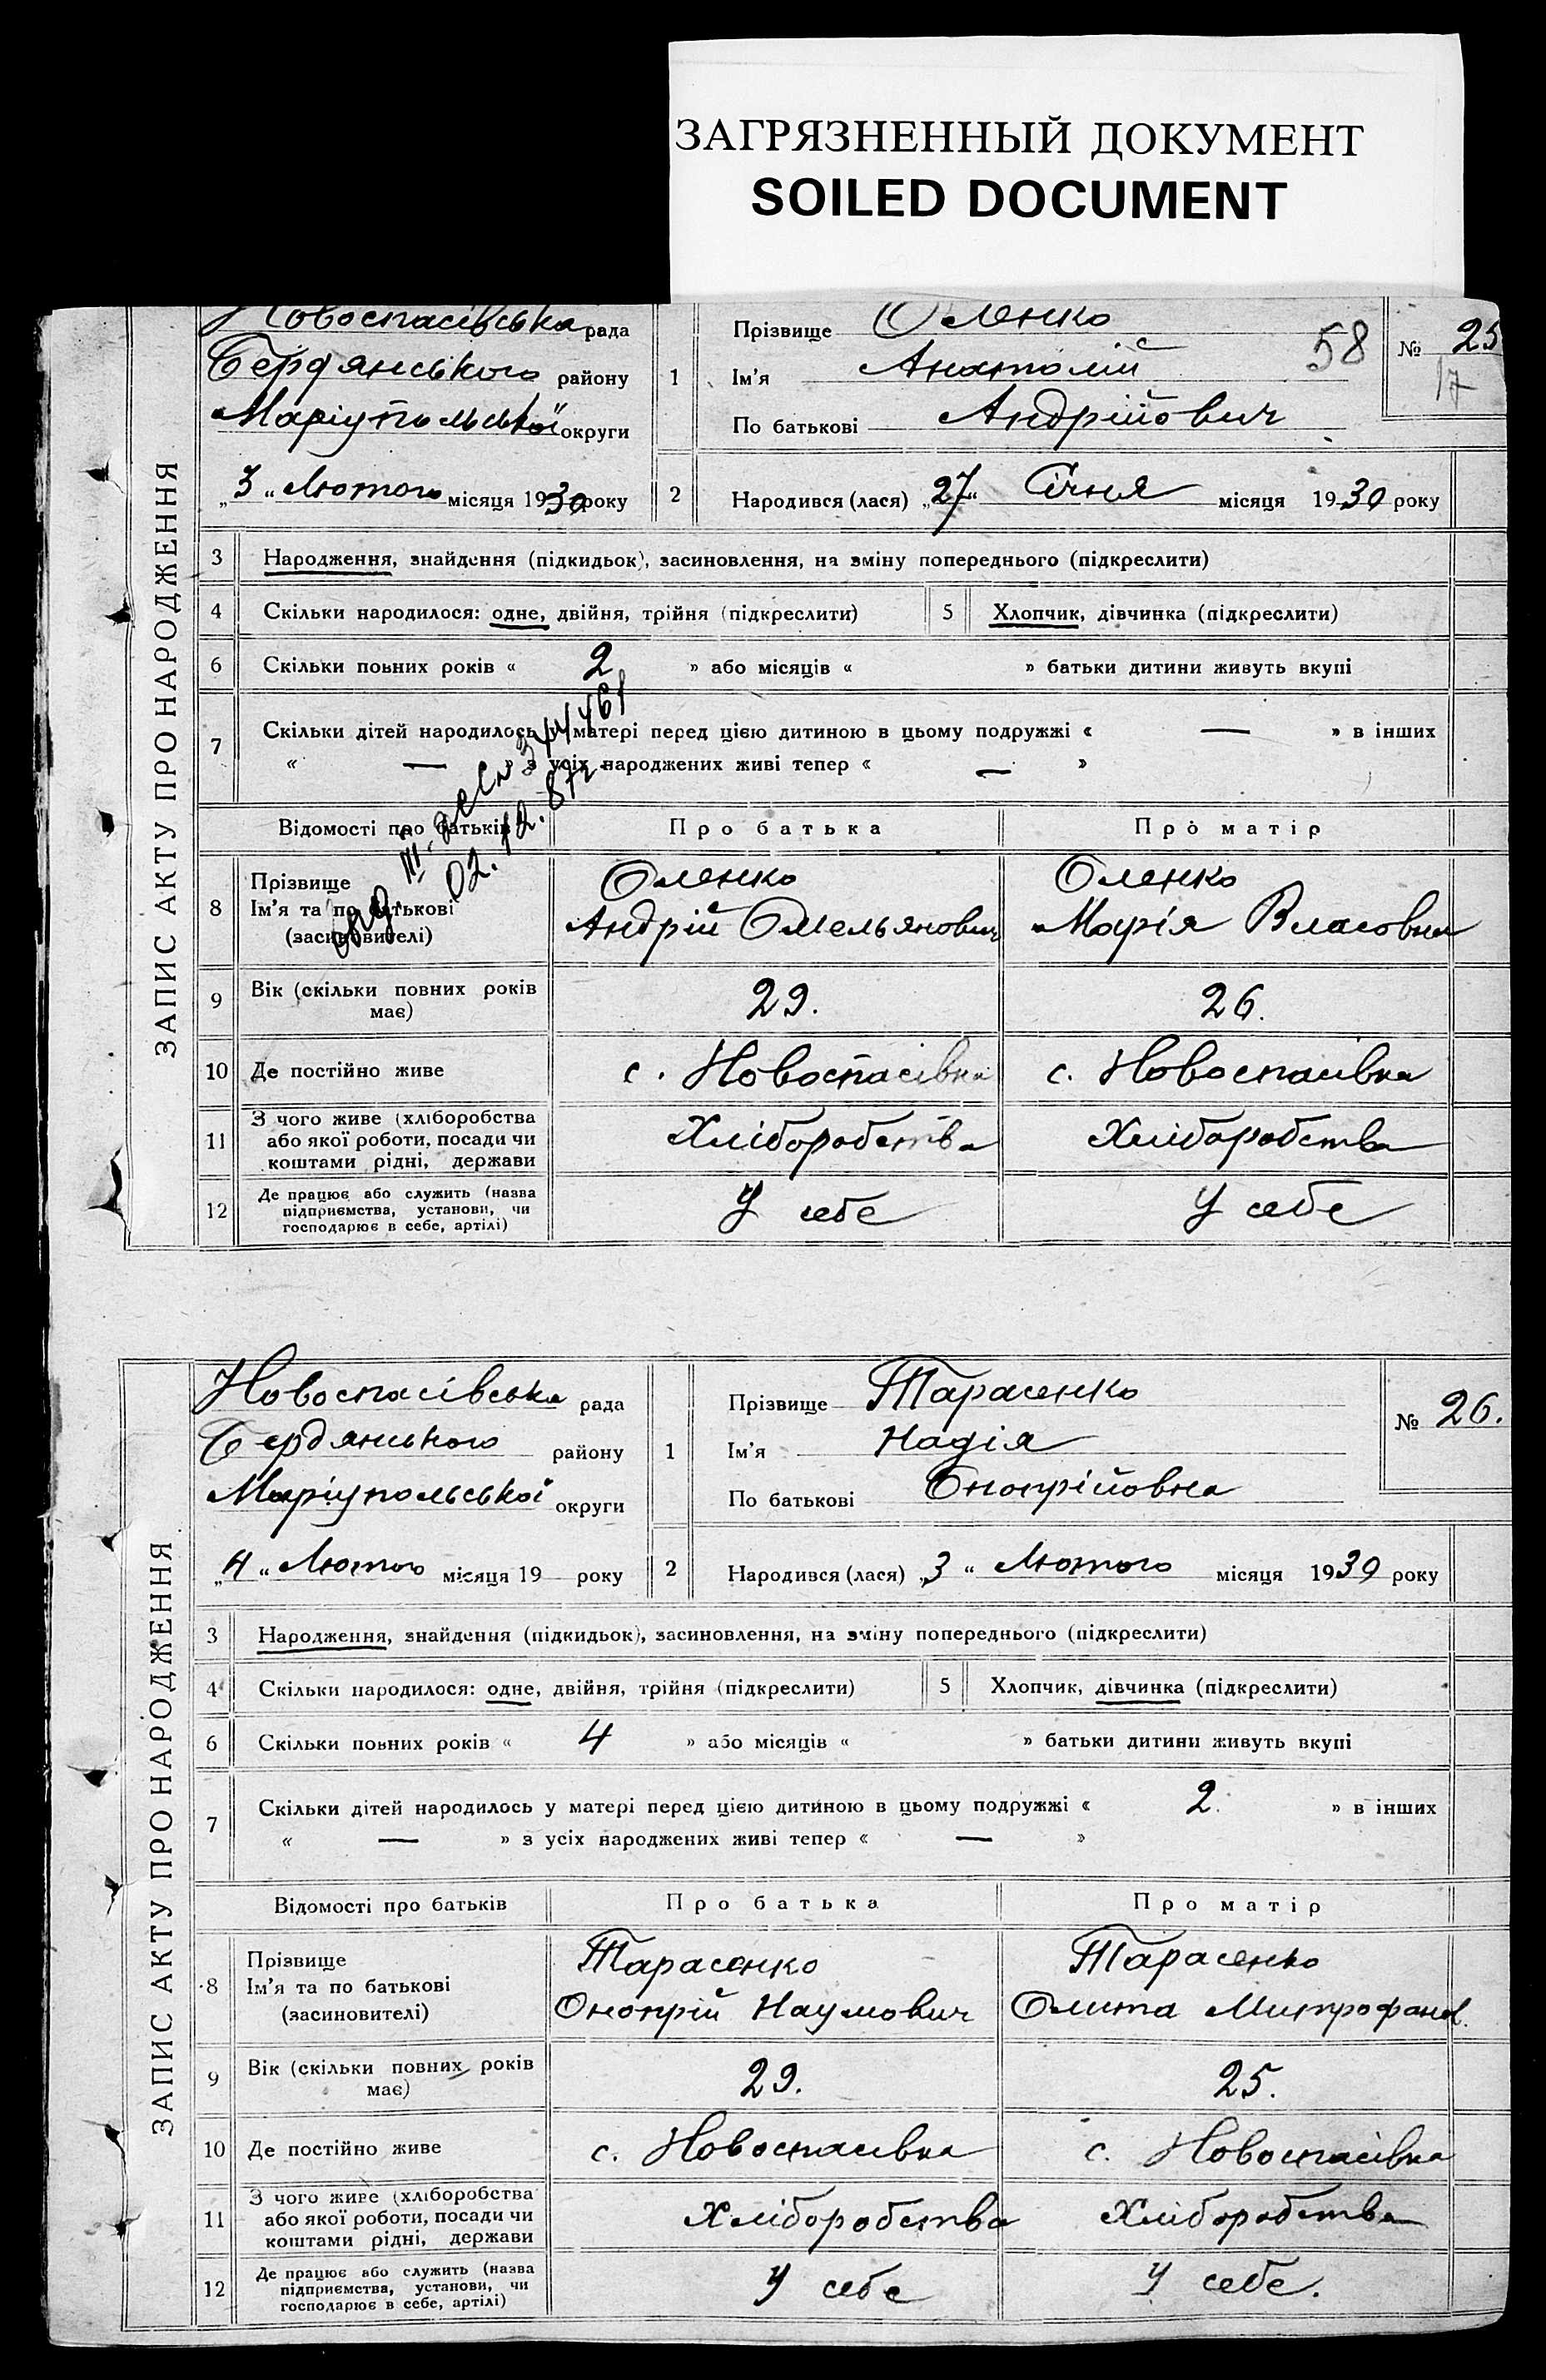 ЗАГРЯЗНЕННЫЙ ДОКУМЕНТ
SOILED DOCUMENT
ЗАПИС АКТУ ПРО НАРОДЖЕННЯ
Новоспасівська рада
Бердянського району
Маріупольської округи
„3“ Лютого місяця 1930 року
1 Прізвище Оленко
Ім'я Анатолій
По батькові Андрійович
58
№ 25
17
2 Народився (лася) „27“ Січня місяця 1930 року
3 Народження, знайдення (підкидьок), засиновлення, на зміну попереднього (підкреслити)
4 Скільки народилося: одне, двійня, трійня (підкреслити) 5 Хлопчик, дівчинка (підкреслити)
6 Скільки повних років « 2 » або місяців « » батьки дитини живуть вкупі
7 Скільки дітей народилось у матері перед цією дитиною в цьому подружжі « — » в інших
« — » з усіх народжених живі тепер « — »
02.12.87г
Відомості про батьків Про батька Про матір
8 Прізвище Оленко Оленко
Ім'я та по батькові Андрій Омельянович Марія Власовна
(засиновителі)
9 Вік (скільки повних років має) 29. 26.
10 Де постійно живе с. Новоспасівка с. Новоспасівка
11 З чого живе (хліборобства або якої роботи, посади чи коштами рідні, держави Хліборобства Хліборобства
12 Де працює або служить (назва підприємства, установи, чи господарює в себе, артілі) У себе У себе
ЗАПИС АКТУ ПРО НАРОДЖЕННЯ
Новоспасівська рада
Бердянського району
Маріупольської округи
„4“ Лютого місяця 19 — року
1 Прізвище Тарасенко
Ім'я Надія
По батькові Онопрійовна
№ 26.
2 Народився (лася) „3“ Лютого місяця 1930 року
3 Народження, знайдення (підкидьок), засиновлення, на зміну попереднього (підкреслити)
4 Скільки народилося: одне, двійня, трійня (підкреслити) 5 Хлопчик, дівчинка (підкреслити)
6 Скільки повних років « 4 » або місяців « » батьки дитини живуть вкупі
7 Скільки дітей народилось у матері перед цією дитиною в цьому подружжі « 2. » в інших
« — » з усіх народжених живі тепер « — »
Відомості про батьків Про батька Про матір
8 Прізвище Тарасенко Тарасенко
Ім'я та по батькові Онопрій Наумович Митрофанов.
(засиновителі)
9 Вік (скільки повних років має) 29. 25.
10 Де постійно живе с. Новоспасівка с. Новоспасівка
11 З чого живе (хліборобства або якої роботи, посади чи коштами рідні, держави Хліборобства Хліборобства
12 Де працює або служить (назва підприємства, установи, чи господарює в себе, артілі) У себе У себе.